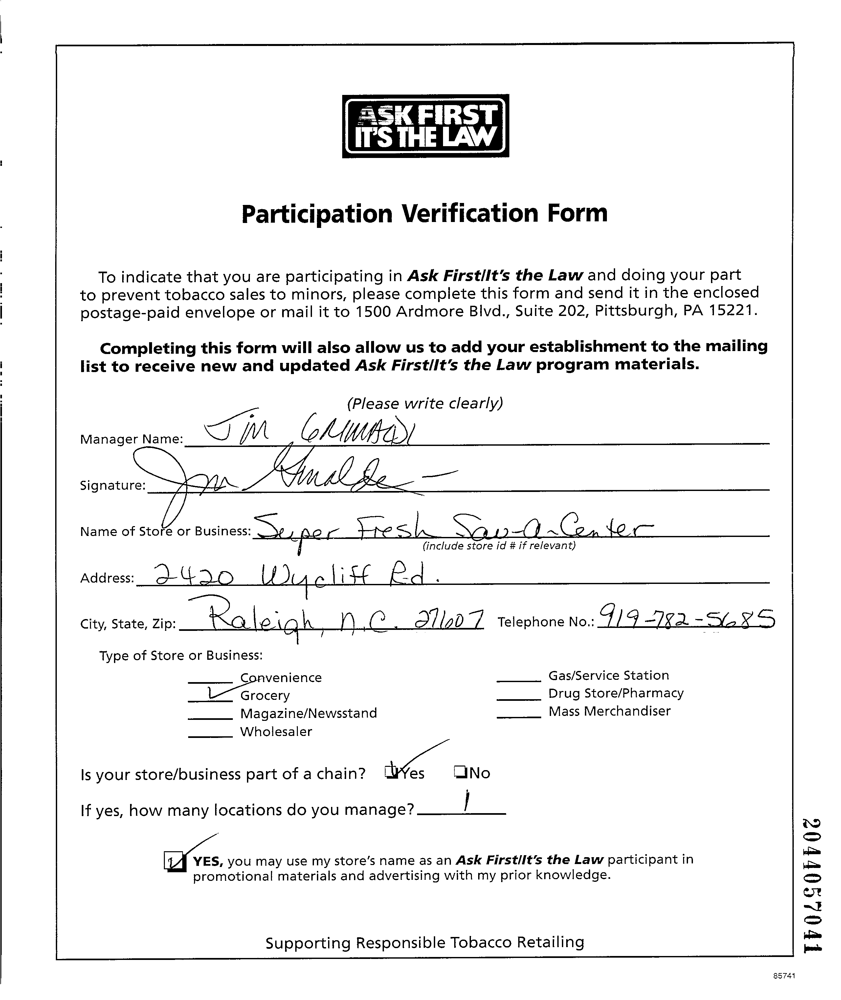 ASK FIRST
IT'S THE LAW
Participation Verification Form
To indicate that you are participating in Ask First/It's the Law and doing your part
to prevent tobacco sales to minors, please complete this form and send it in the enclosed
postage-paid envelope or mail it to 1500 Ardmore Blvd., Suite 202, Pittsburgh, PA 15221.
Completing this form will also allow us to add your establishment to the mailing
list to receive new and updated Ask First/It's the Law program materials.
(Please write clearly)
Manager Name: Jim GRIMALDI
Signature: Jim Grimaldi
Name of Store or Business: Super Fresh Sav-A-Center
(include store id # if relevant)
Address: 2420 Wycliff Rd.
City, State, Zip: Raleigh, N.C. 27607 Telephone No.: 919-782-5685
Type of Store or Business:
Convenience Gas/Service Station
Grocery Drug Store/Pharmacy
Magazine/Newsstand Mass Merchandiser
Wholesaler
Is your store/business part of a chain? Yes No
If yes, how many locations do you manage? 1
YES, you may use my store's name as an Ask First/It's the Law participant in
promotional materials and advertising with my prior knowledge.
Supporting Responsible Tobacco Retailing
2044057041
85741